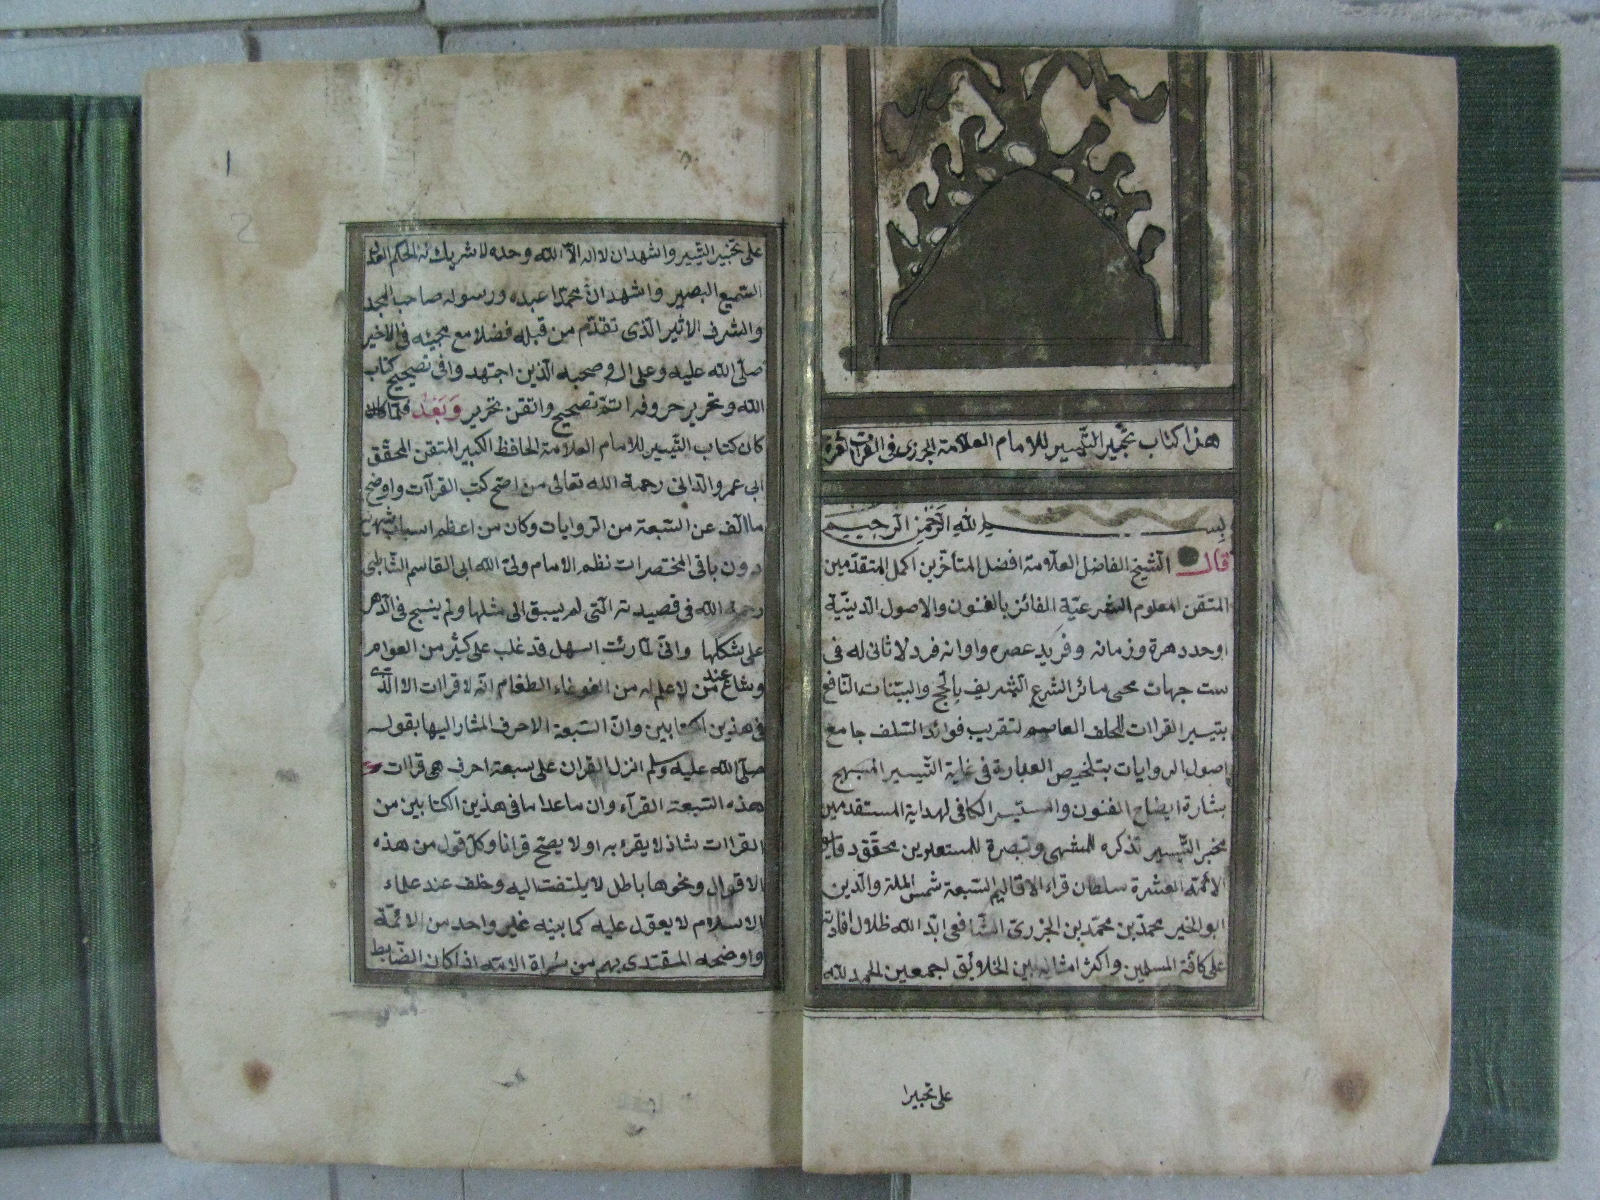 هذا كتاب تحبير التيسير للامام العلامة الجزرى فى القرات
بسم الله الرحمن الرحيم
قال الشيخ الفاضل العلامة افضل المتأخرين اكمل المتقدمين
المتقن لمعلوم الشرعية الفائز بالفنون والاصول الدينية
اوحد دهرة وزمانه وفريد عصره واوانه فرد لا ثانى له فى
ست جهات محيى مائر الشرع الشريف بالحجج والبينات النافع
بتيسير القراات للخلف العاصم لتقريب فوائد السلف جامع
اصول الروايات بتلخيص العبارة فى غاية التيسير المبهج
بشارة ايضاح الفنون والمستنير الكافى لهداية المستقدمين
مخبر التيسير تذكره المنتهى وتبصرة للمستعلمين محقق دقايق
الائمة العشرة سلطان قراء الاقاليم السبعة شمس الملة والدين
ابو الخير محمد بن محمد بن الجزرى الشافعى ابد الله ظلال افادته
على كافة المسلمين واكثر امثاله بين الخلائق اجمعين الحمد لله
على تحبيرا
1
2
على تحبير التيسير واشهد ان لا اله الا الله وحده لا شريك له الحكم
السميع البصير واشهد ان محمدا عبده ورسوله صاحب المجد
والشرف الاثير الذى تقدم من قبله فضلا مع مجيئه فى الاخير
صلى الله عليه وعلى اله وصحبه الذين اجتهد وافى تصحيح كتاب
الله وتحرير حروفه اتم تصحيح واتقن تحرير وبعد فلما
كان كتاب التيسير للامام العلامة الحافظ الكبير المتقن المحقق
ابى عمر والدانى رحمة الله تعالى من اصح كتب القراآت واوضح
ما الف عن السبعة من الروايات وكان من اعظم اسباب شهرته
دون باقى المختصرات نظم الامام ولى الله ابى القاسم الشاطبى
رحمه الله فى قصيدته التى لم يسبق الى مثلها ولم ينسج فى الدهر
على شكلها وانى لما رئت الجهل قد غلب على كثير من العوام
وشاع عند من لا علم له من الغوغاء الطغام انه لا قراات الا الذى
فى هذين الكتابين وان السبعة الاحرف المشار اليها بقوله
صلى الله عليه وسلم انزل القران على سبعة احرف هى قراات
هذه السبعة القرآء وان ما عدا ما فى هذين الكتابين من
القراات شاذ لا يقرء به او لا يصح قرانا وكل قول من هذه
الاقوال ونحوها باطل لا يلتفت اليه وخلف عند علماء
الاسلام لا يعول عليه كما بينه غير واحد من الائمة
واوضحه المقتدى بهم من سراة الامة اذ كان الضابط